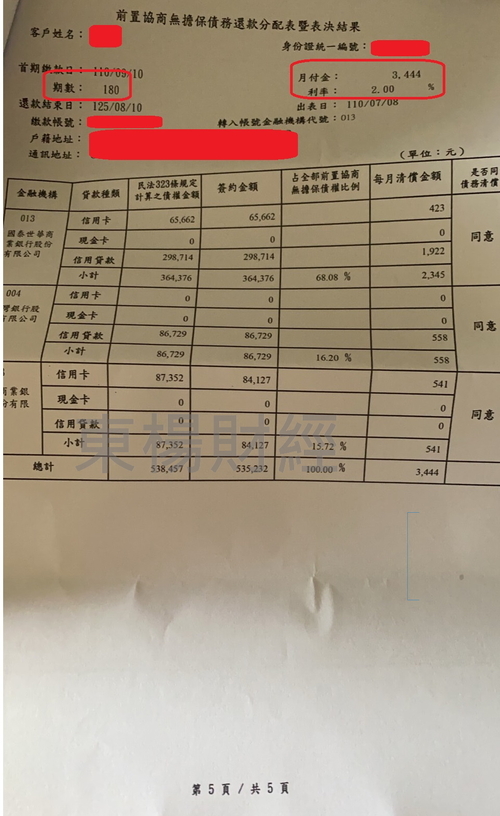 前置協商無擔保債務還款分配表暨表決結果
客戶姓名：
身份證統一編號：
首期繳款日：110/09/10
月付金： 3,444
期數： 180
利率： 2.00 %
還款結束日：125/08/10
出表日：110/07/08
繳款帳號：
轉入帳號金融機構代號：013
戶籍地址：
通訊地址：
(單位：元)
金融機構 貸款種類 民法323條規定計算之債權金額 簽約金額 占全部前置協商無擔保債權比例 每月清償金額 是否同 債務清償
013 國泰世華商業銀行股份有限公司 信用卡 65,662 65,662 423 同意
現金卡 0 0 0
信用貸款 298,714 298,714 1,922
小計 364,376 364,376 68.08 % 2,345
004 灣銀行股 有限公司 信用卡 0 0 0 同意
現金卡 0 0 0
信用貸款 86,729 86,729 558
小計 86,729 86,729 16.20 % 558
商業銀 份有限 信用卡 87,352 84,127 541 同意
現金卡 0 0 0
信用貸款 0 0 0
小計 87,352 84,127 15.72 % 541
總計 538,457 535,232 100.00 % 3,444
東楊財經
第 5 頁 / 共 5 頁